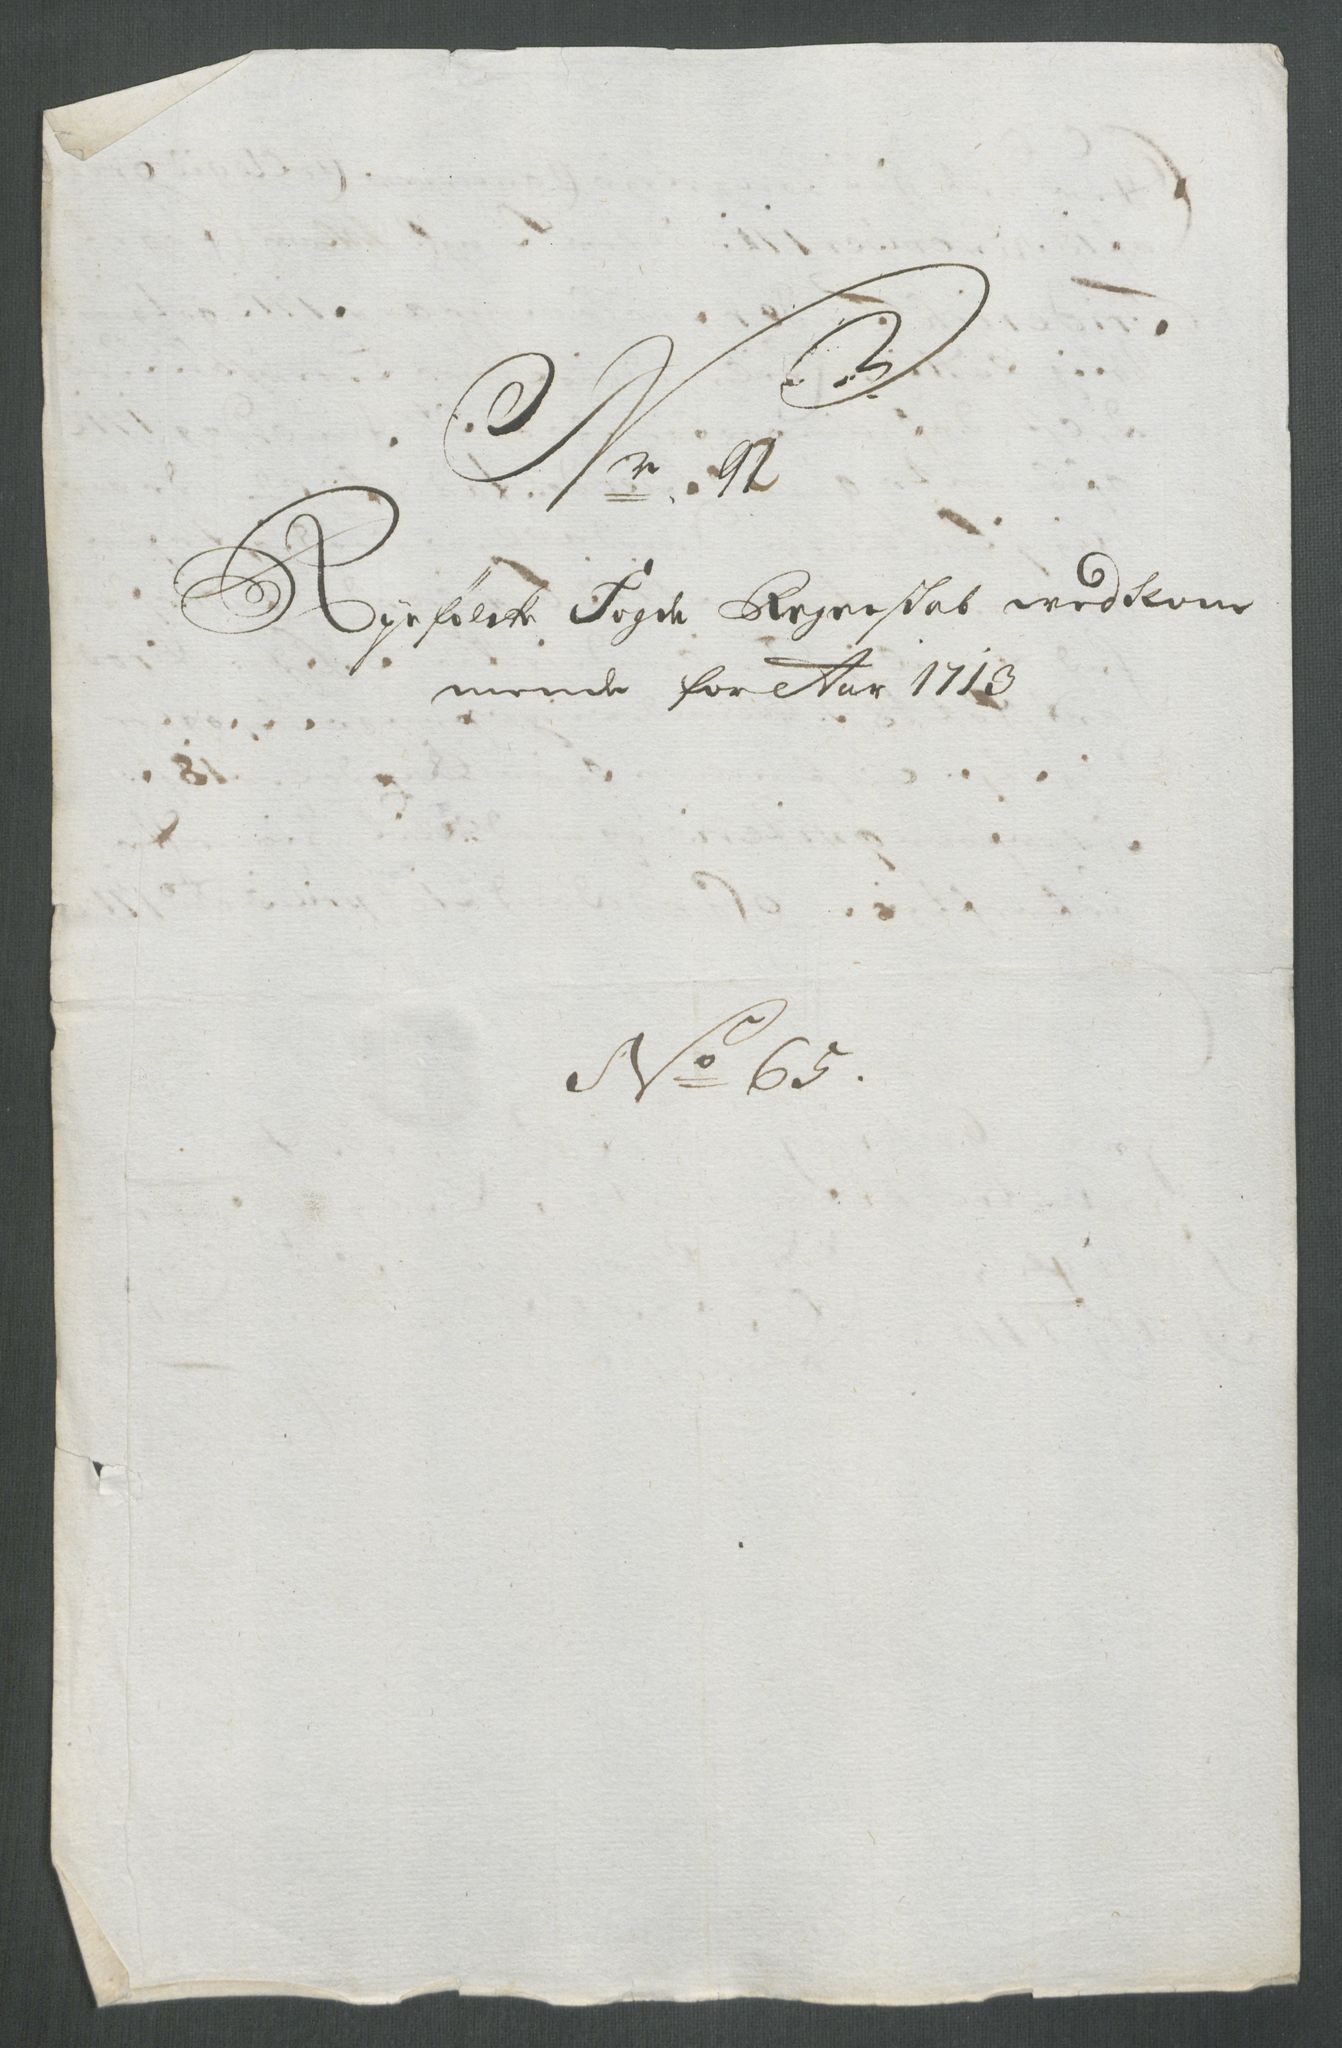 Nr. 92
Ryefylche Fogde Regenskab vedkom
mende for Aar 1713
No 65.